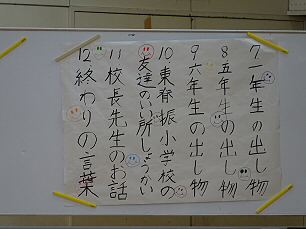 7 一年生の出し物
8 五年生の出し物
9 六年生の出し物
10 東脊振小学校の
友達のいい所しょうかい
11 校長先生のお話
12 終わりの言葉